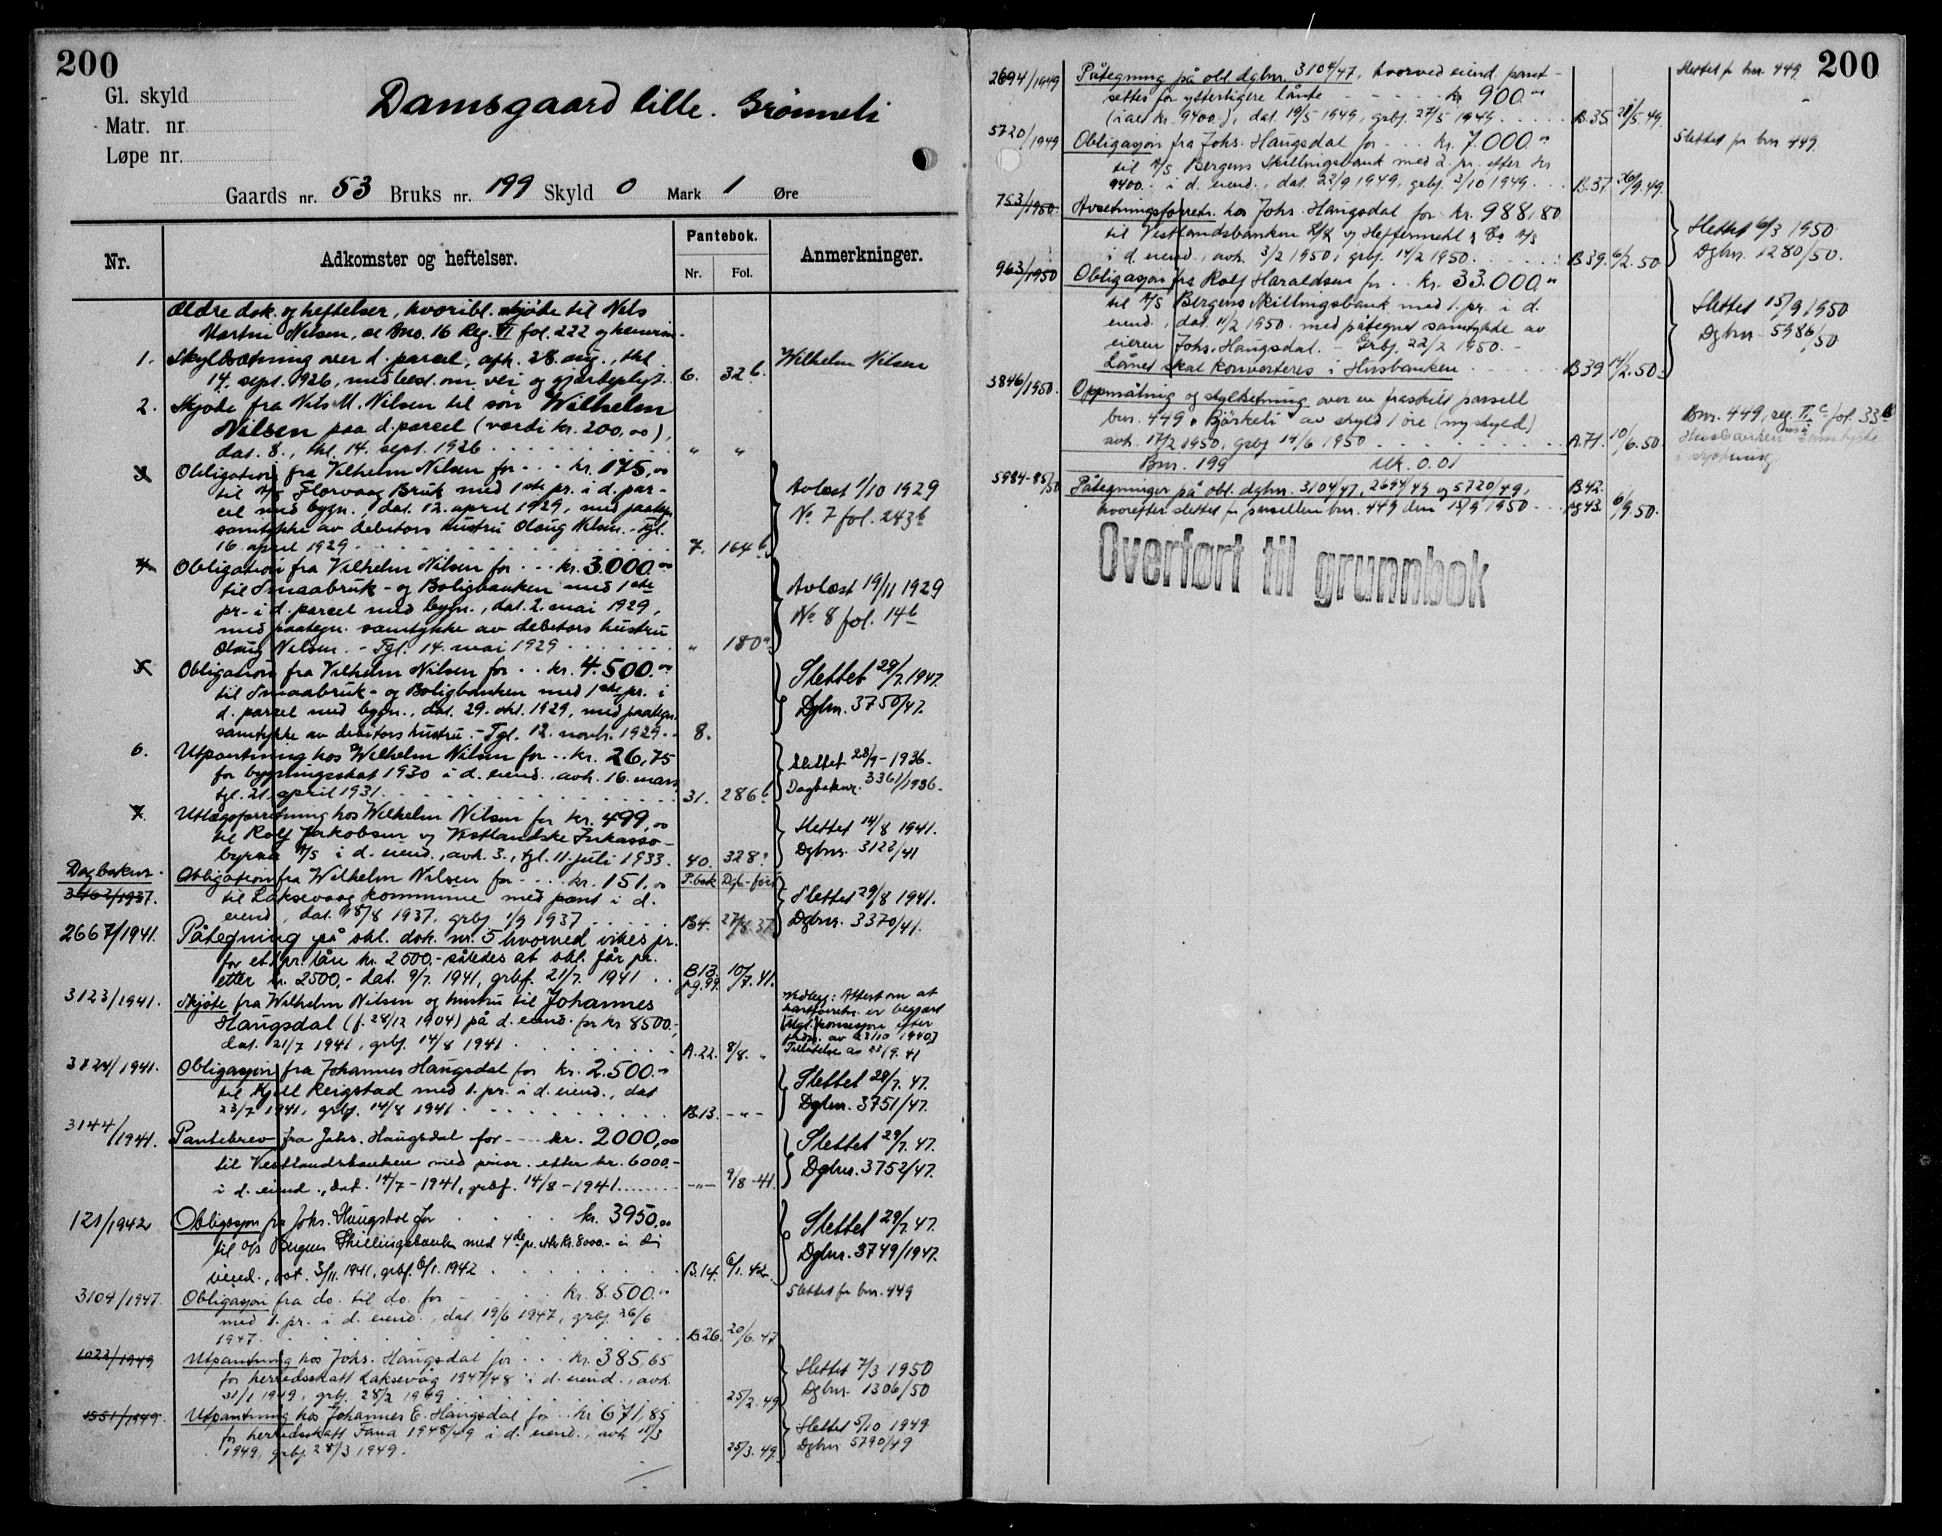 200
Gl. skyld
Matr. nr.
Løpe nr.
Damsgaard lille. Grønneli
Gaards nr. 53 Bruks nr. 199 Skyld 0 Mark 1 Øre
Nr.
Adkomster og heftelser.
Pantebok.
Nr. Fol.
Anmerkninger.
Ældre dok. og heftelser, hvoribl. skjøde til Nils
Martin Nilsen, se Bno. 16 Reg. II fol. 222 og henvisn.
1. Skyldsætning over d. parcel, afh. 28. aug., thl.
14. sept. 1926, med best. om vei og gjærdepligt. 6. 32b. Wilhelm Nilsen
2. Skjøde fra Nils M. Nilsen til søn Wilhelm
Nilsen paa d. parcel (værdi kr. 200,00),
dat. 8., thl. 14. sept. 1926 " "
3. Obligation fra Vilhelm Nilsen for kr. 175,00
til A/S Florvaag Bruk med 1ste pr. i d. par-
cel med bygn., dat. 12. april 1929, med paategn.
samtykke av debitors hustru Olaug Nilsen. - Tgl.
16. april 1929 7. 164b.
Avlæst 1/10 1929
No. 7 fol. 243b
4. Obligation fra Vilhelm Nilsen for kr. 3.000.00
til Smaabruk- og Boligbanken med 1ste
pr. i d. parcel med bygn., dat. 2. mai 1929,
med paategn. samtykke av debitors hustru
Olaug Nilsen. - Tgl. 14. mai 1929 " 180a
Avlæst 19/11 1929
No 8 fol. 14b
5. Obligation fra Vilhelm Nilsen for kr. 4.500.00
til Smaabruk- og Boligbanken med 1ste pr. i
d. parcel med bygn., dat. 29. okt. 1929, med paategn.
samtykke av debitors hustru. - Tgl. 12. novbr. 1929 8.
Slettet 29/7. 1947.
Dgbnr. 3750/47.
6. Utpantning hos Wilhelm Nilsen for kr. 26,75
for bygningsskat 1930 i d. eiend., avh. 16. mars,
tgl. 21. april 1931. 31. 286b
Slettet 28/9-1936.
Dagboknr. 3361/1936.
7. Utlægsforretning hos Wilhelm Nilsen for kr. 499,00
til Rolf Jakobsen og Vestlandske Inkasso-
byraa A/S i d. eiend., avh. 3., tgl. 11. juli 1933. 40. 328a
Slettet 14/8 1941.
Dgbnr. 3122/41
Dagboknr. P.bok Dgb.-ført
3402/1937. Obligation fra Wilhelm Nilsen for kr. 151,00
til Laksevaag kommune med pant i d.
eiend., dat. 28/8 1937, grbf 1/9 1937 B4. 27/8.37
Slettet 29/8 1941.
Dgbnr. 3370/41.
2667/1941. Påtegning på obl. dok. nr. 5 hvorved vikes pr.
for et pr. lån kr. 2500.- således at obl. får pr.
etter kr. 2500,- dat. 9/7. 1941, grbf. 21/7. 1941 B13. pg. 99. 10/7.41.
3123/1941. Skjøte fra Wilhelm Nilsen og hustru til Johannes
Haugsdal (f. 28/12 1904) på d. eiend. for kr 8500.-,
dat. 21/7 1941, grbf. 14/8 1941 A.22. 8/8. "
Vedlegg: Attest om at
kartforretn. er begjært
Tillatelse av 23/9. 41
3124/1941. Obligasjon fra Johannes Haugsdal for kr. 2.500.00
til Kjell Reigstad med 1. pr. i d. eiend., dat
23/7 1941, grbf. 14/8 1941. B.13. - " -
Slettet 28/7. 47.
Dgbnr. 3751/47.
3144/1941. Pantebrev fra Johs. Haugsdal for kr. 2000,00
til Vestlandsbanken med prior. efter kr. 6000.-
i d. eiend., dat. 14/7-1941, grbf. 14/8-1941 -"- 9/8-41.
Slettet 29/7. 47.
Dgbnr. 3752/47.
121/1942 Obligasjon fra Johs. Haugsdal for kr. 3950,00
til A/S Bergens Skillingsbank med 4de pr. etter kr. 8000.- i d.
eiend., dat. 3/11. 1941, grbf. 6/1. 1942 B.14. 6/1. 42.
Slettet 29/7. 47.
Dgbnr. 3749/1947.
3104/1947. Obligasjon fra do. til do. for kr. 8.500.00
med 1. pr. i d. eiend., dat. 19/6 1947, grbf. 26/6
1947. B.26. 20/6.47
Slettet for bnr. 449
1022/1949 Utpantning hos Johs. Haugsdal for kr. 385,65
for herredsskatt Laksevåg 1947/48 i d. eiend., avh.
31/1 1949, grbf. 28/2 1949 25/2.49
Slettet 7/3 1950
Dgbnr. 1306/50
1551/1949. Utpantning hos Johannes E. Haugsdal for kr. 671,85
for herredsskatt Fana 1948/49 i d. eiend., avh 11/3
1949, grbf. 28/3 1949. 25/3.49
Slettet 5/10 1949
Dgbnr 5790/49
200
2694/1949 Påtegning på obl. dgbnr. 3104/47, hvorved eiend. pant-
settes for ytterligere lånte kr. 900.00
(i alt kr. 9400.-), dat. 19/5 1949, grbf. 27/5 1949 B.35. 21/5.49.
Slettet for bnr. 449
5720/1949 Obligasjon fra Johs. Haugsdal for kr. 7.000.00
til A/S Bergens Skillingsbank med 2. pr. efter kr
9400.- i d. eiend., dat. 22/9 1949, grbf. 3/10 1949 B.37. 30/9.49.
Slettet for bnr 449.
753/1950. Avsetningsforretn. hos Johs. Haugsdal for kr. 988,80
til Vestlandsbanken L/L og Heffermehl & Co A/S
i d. eiend., avh. 3/2 1950, grbf. 14/2 1950 B39. 6/2.50
Slettet 6/3 1950
Dgbnr. 1280/50.
963/1950 Obligasjon fra Rolf Haraldsen for kr. 33.000.00
til A/S Bergens Skillingsbank med 1. pr. i d.
eiend., dat. 11/2 1950, med påtegnet samtykke av
eieren Johs. Haugsdal. - Grbf. 22/2 1950. -
Lånet skal konverteres i Husbanken B39 14/2.50
Slettet 15/9 1950
Dgbnr 5986/50
3846/1950. Oppmåling og skyldsetning over en fraskilt parsell
bnr. 449 "Bjørkeli" av skyld 1 øre (ny skyld)
avh. 17/2 1950, grbf 14/6 1950 A.71. 10/6.50
Bnr. 449, reg. II c fol. 33b
Bnr. 199 Mk. 0.01
5984-85/50 Påtegninger på obl. dgbnr. 3104/47, 2694/49 og 5720/49,
hvorefter slettet for parsellen bnr. 449 den 15/9 1950 B42. og 43. 6/9.50.
Overført til grunnbok